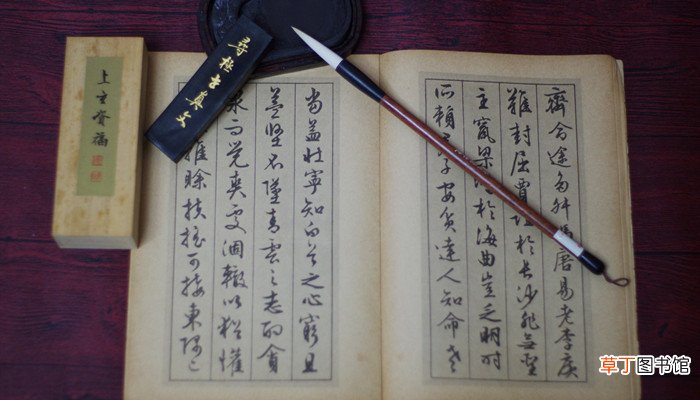 齊命途多舛馮唐易老李廣
難封屈賈誼於長沙非無聖
主竄梁鴻於海曲豈乏明時
所賴君子安貧達人知命老
當益壯寧知白首之心窮且
益堅不墜青雲之志酌貪
泉而覺爽處涸轍以猶懽
雖賒扶搖可接東隅已
真文
上
福
草丁图书馆